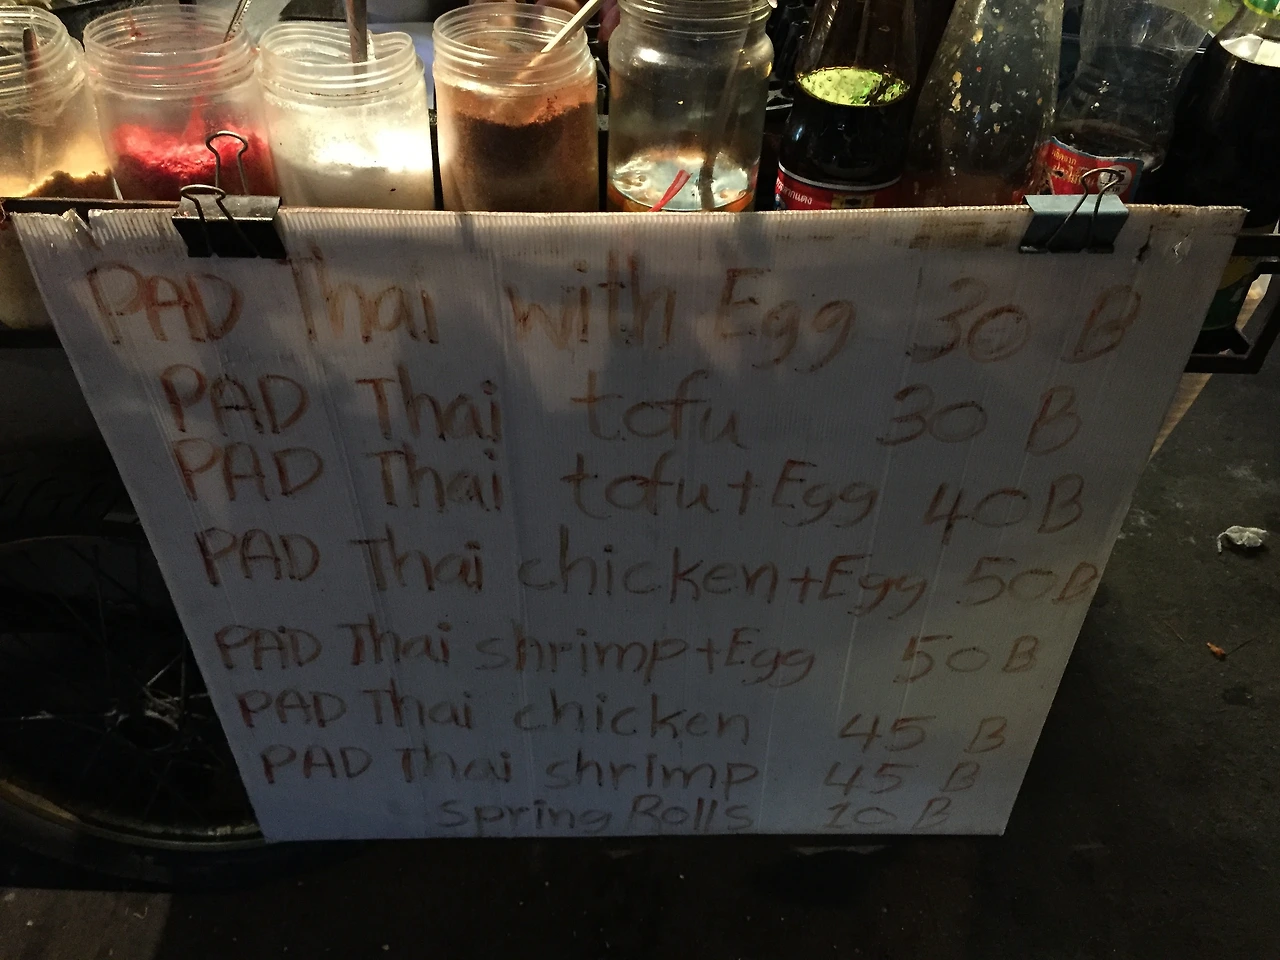 PAD Thai with Egg 30 B
PAD Thai tofu 30 B
PAD Thai tofu+Egg 40B
PAD Thai chicken+Egg 50B
PAD Thai shrimp+Egg 50B
PAD Thai chicken 45 B
PAD Thai shrimp 45 B
spring Rolls 10 B